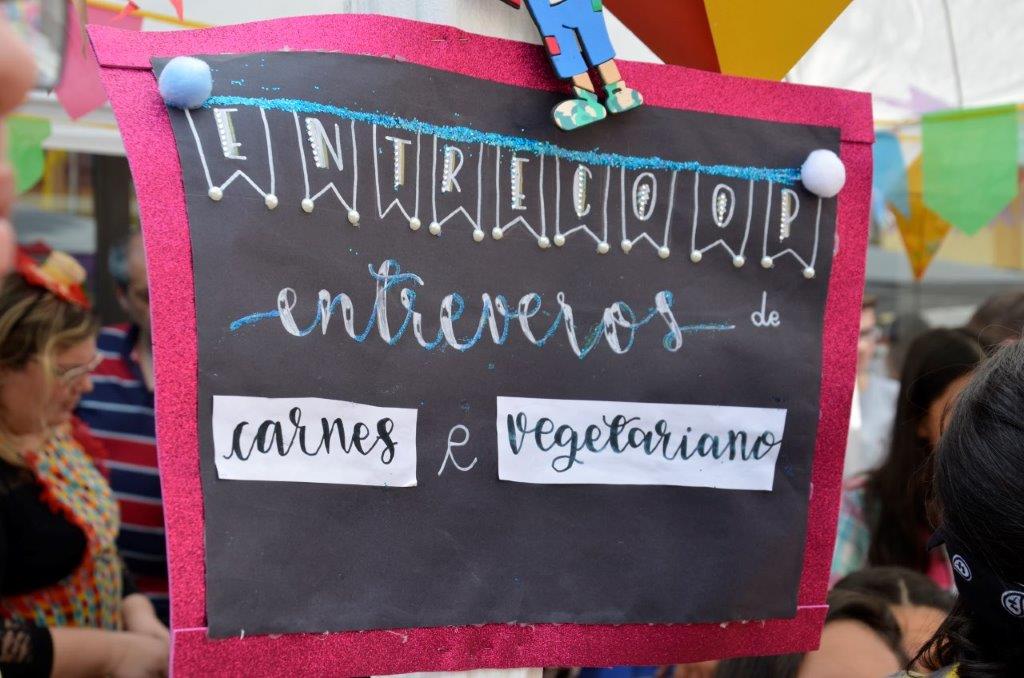 ENTRECOOP
entreveros de
carnes e vegetariano